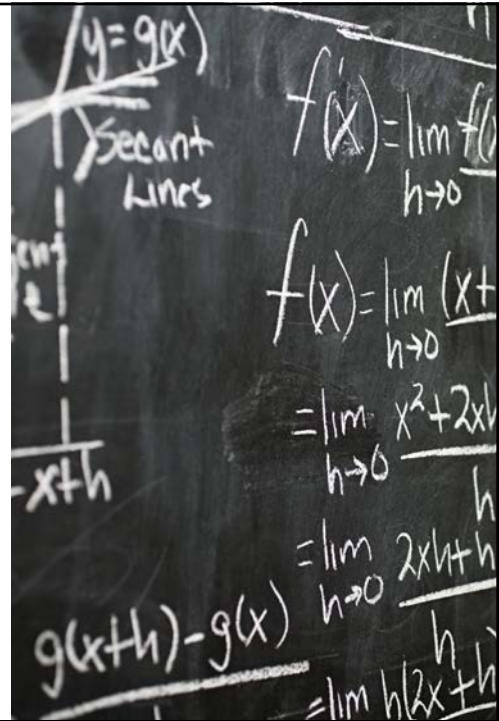 y=g(x)
Secant
Lines
x+h
g(x+h)-g(x)
f'(x)=lim f(
h→0
f(x)=lim (x+
h→0
=lim x²+2xh
h→0 h
=lim 2xh+h
h→0 h
=lim h(2x+h